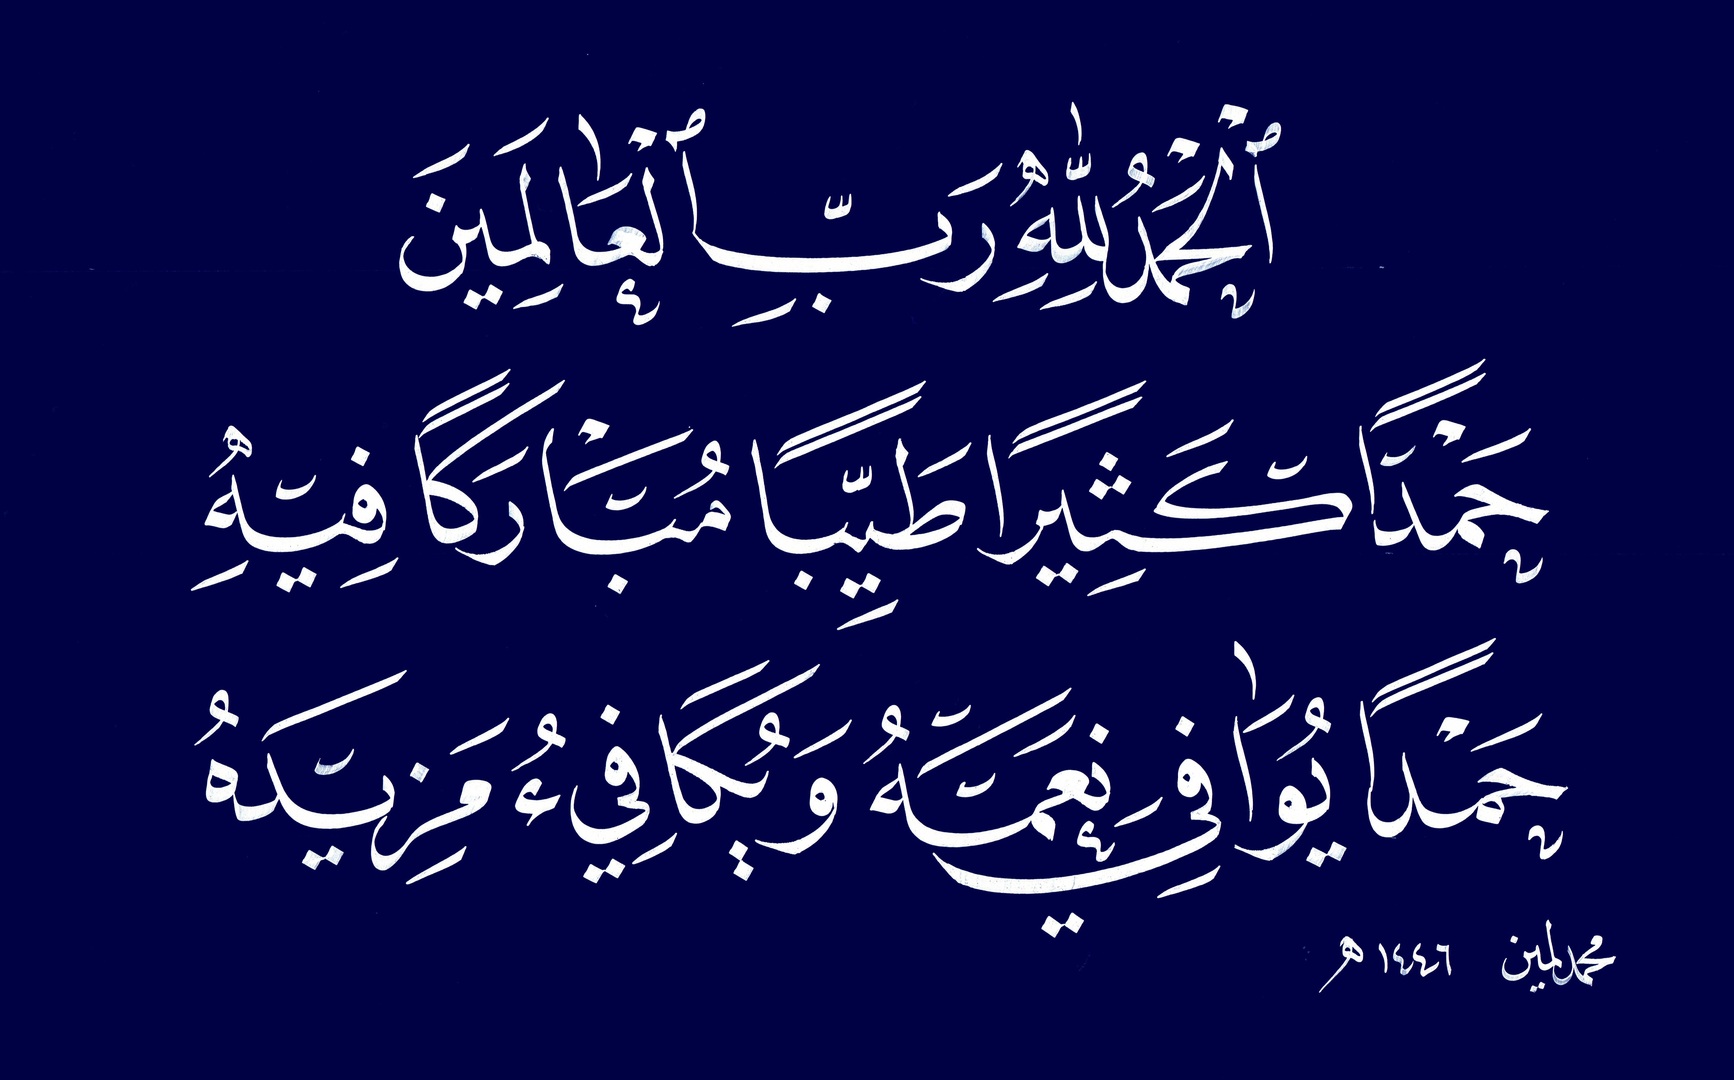 ٱلْحَمْدُ لِلّٰهِ رَبِّ ٱلْعَالَمِينَ
حَمْدًا كَثِيرًا طَيِّبًا مُبَارَكًا فِيهِ
حَمْدًا يُوَافِي نِعَمَهُ وَيُكَافِيءُ مَزِيدَهُ
محمد لمين ١٤٤٦ هـ